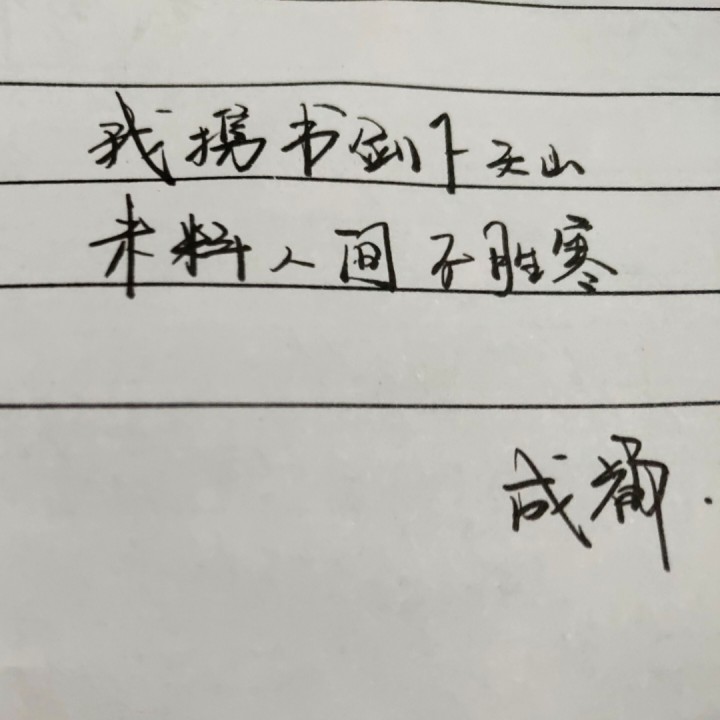 我携书剑下天山
未料人间不胜寒
成都.